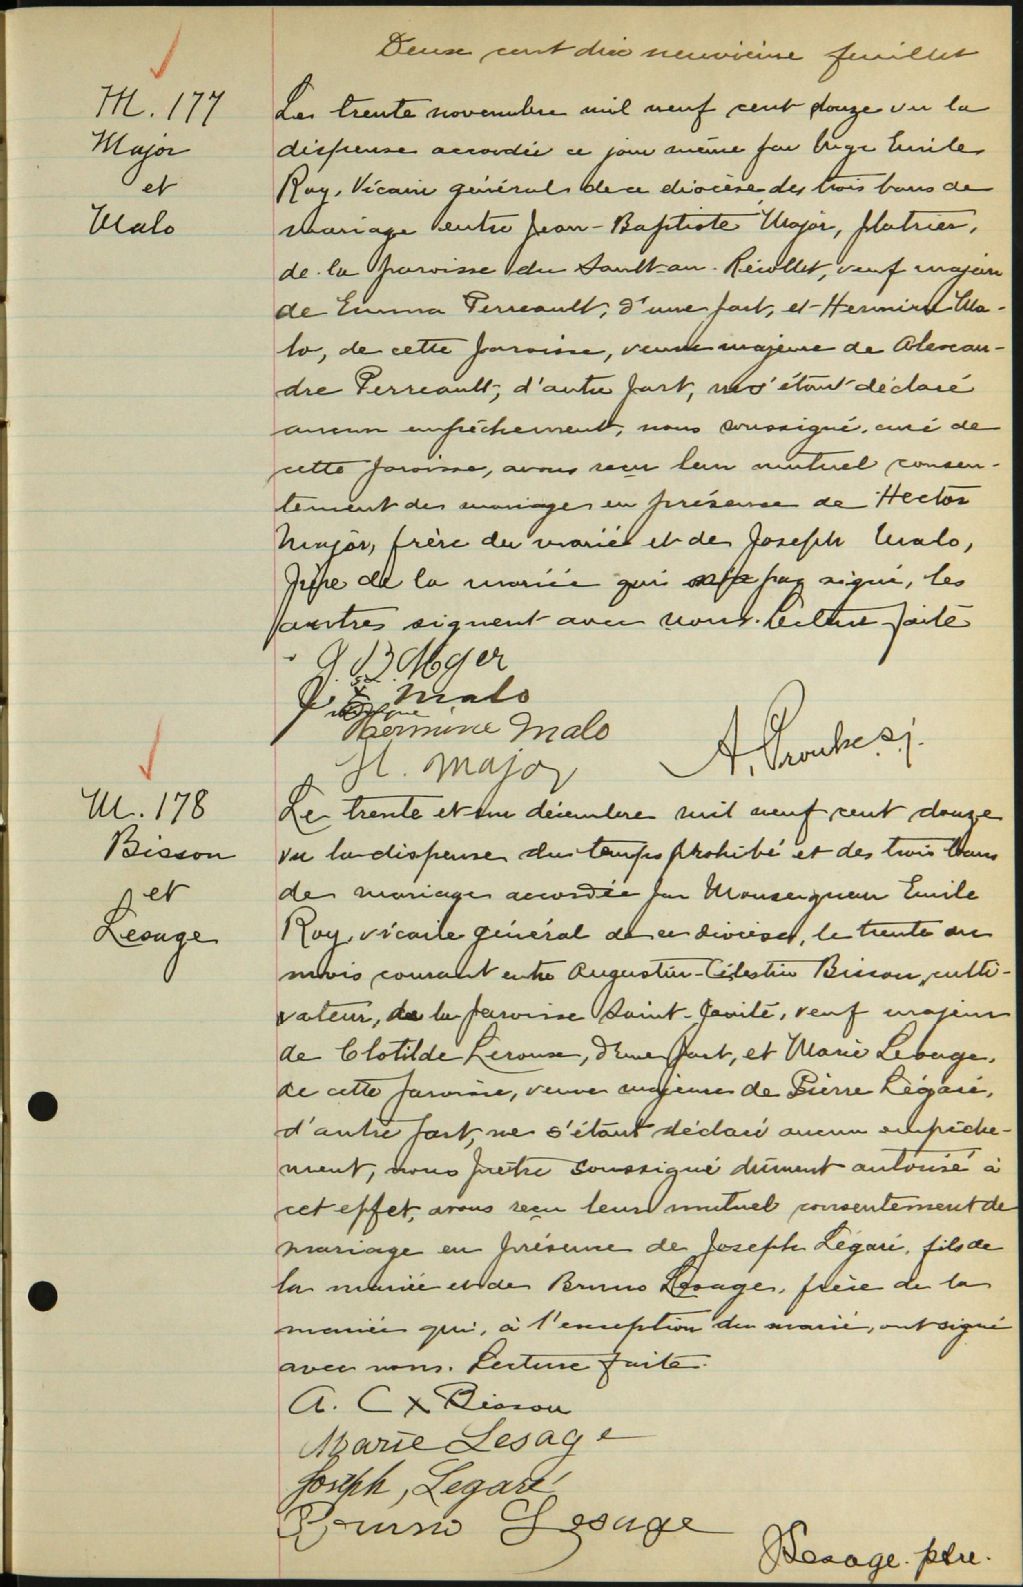 Deux cent dix neuvième feuillet
M. 177
Major
et
Malo
Le trente novembre mil neuf cent douze vu la
dispense accordée ce jour même par Mgr Emile
Roy, Vicaire général de ce diocèse, des trois bans de
mariage entre Jean-Baptiste Major, platrier,
de la paroisse du Sault-au-Récollet, veuf majeur
de Emma Perreault, d'une part, et Hermine Ma-
lo, de cette paroisse, veuve majeure de Alexan-
dre Perreault, d'autre part, ne s'étant déclaré
aucun empêchement, nous soussigné, curé de
cette paroisse, avons reçu leur mutuel consen-
tement de mariage en présence de Hector
Major, frère du marié et de Joseph Malo,
père de la mariée qui pas signé, les
autres signent avec nous. Lecture faite
J. B. Mger
J. Malo
Hermine Malo
H. Major
A. Proulx s.j.
M. 178
Bisson
et
Lesage
Le trente et un décembre mil neuf cent douze
vu la dispense du temps prohibé et des trois bans
de mariage accordée par Monseigneur Emile
Roy, vicaire général de ce diocèse, le trente du
mois courant entre Augustin-Célestin Bisson, culti-
vateur, de la paroisse Saint-Jovite, veuf majeur
de Clotilde Lerouse, d'une part, et Marie Lesage,
de cette paroisse, veuve majeure de Pierre Légaré,
d'autre part, ne s'étant déclaré aucun empêche-
ment, nous prêtre soussigné dûment autorisé à
cet effet, avons reçu leur mutuel consentement de
mariage en présence de Joseph Légaré, fils de
la mariée et de Bruno Lesage, frère de la
mariée qui, à l'exception du marié, ont signé
avec nous. Lecture faite.
A. C X Bisson
Marie Lesage
Joseph, Legaré
Bruno Lesage
Lesage. ptre.